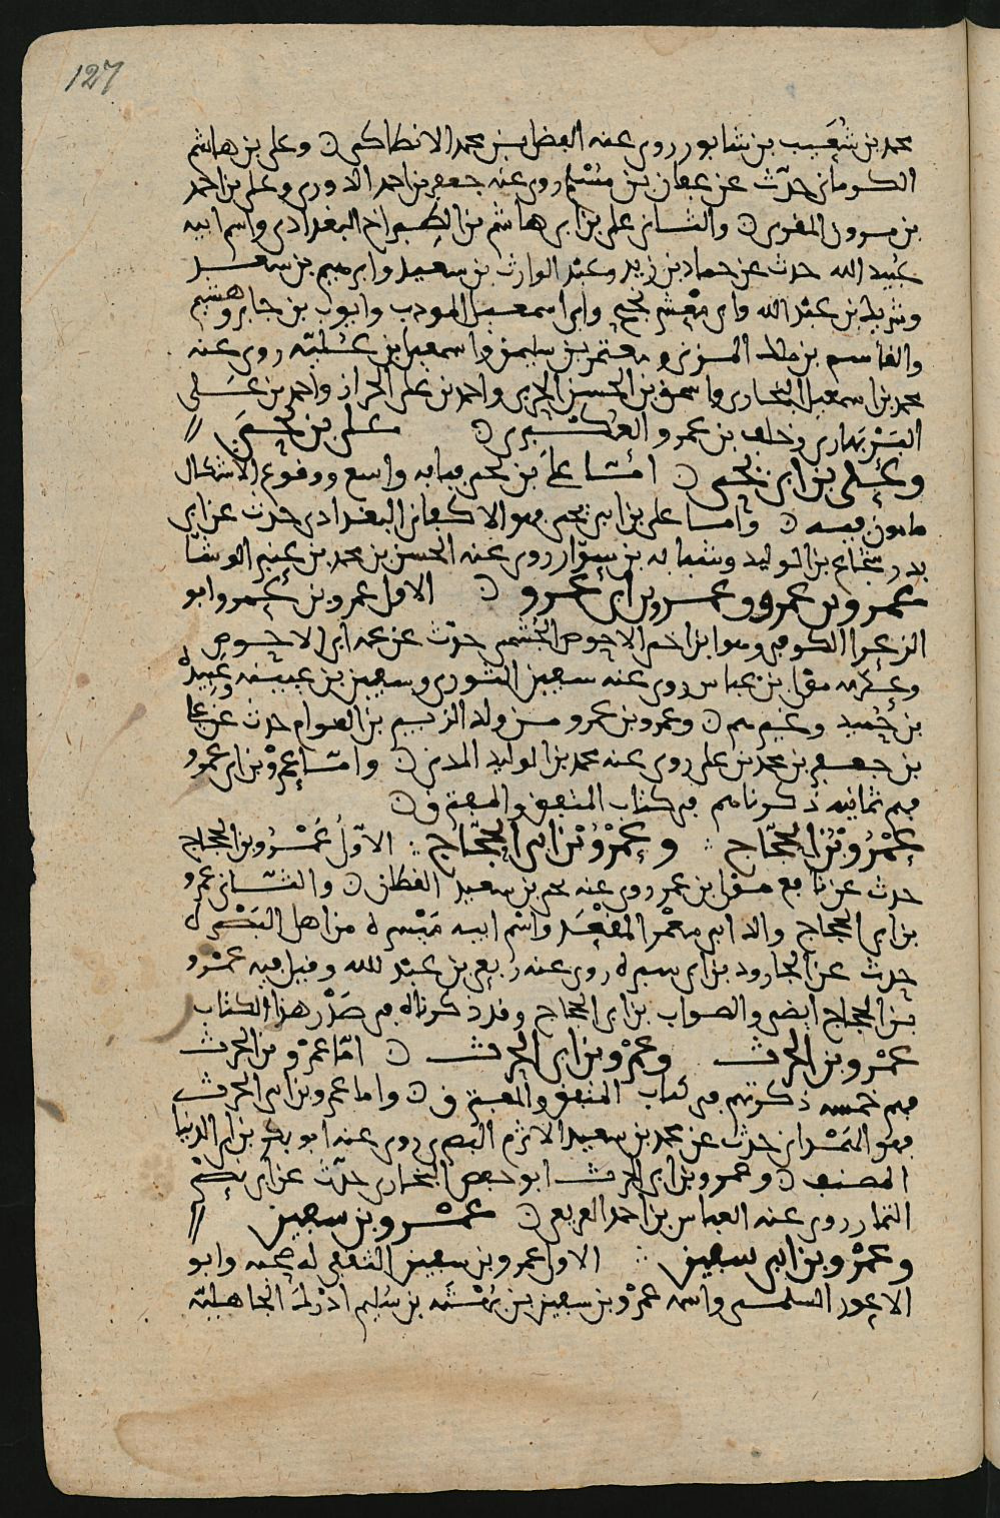 127
محمد بن شعيب بن شابور روى عنه الفضل بن محمد الانطاكي ن وعلي بن هاشم
الكوماني حدّث عن عفان بن مسْلم روى عنه جعفر بن احمد الاوري وعلي بن احمد
بن مرون المقري ن والثاني علي بن ابي هاشم بن الطبراخ البغدادي واسم ابيه
عُبيد الله حدث عن حماد بن زيد وعبْد الوارث بن سعيد وابرهيم بن سعد
وشريك بن عبْد الله وابي معْشر نجيح وابي اسمعيل المودب وايوب بن جابر وهشيم
والقاسم بن مالك المزني ومعتمر بن سليمن واسمعيل بن عُليّة روى عنه
محمد بن اسمعيل البخاري واسحق بن الحسن الحربي واحمد بن علي الخزاز واحمد بن علي
البَرْبَهاري وخلف بن عمرو العُكْبري ن علي بن يحيى
وعلي بن ابي يحيى ن امّا علي بن يحيى فبابه واسع ووقوع الاشكال
مامون فيه ن واما علي بن ابي يحيى فهو الاكفاني البغدادي حدث عن ابي
بدر شجاع بن الوليد وشبابه بن سوّار روى عنه الحسن بن محمد بن عنبر الوشّا
عمرو بن عمرو وعمرو بن ابي عمرو ن الاول عمرو بن عَمرو ابو
الزعرا الكوفي وهو ابن اخي الاحوص الجُشمي حدّث عن عمه ابي الاحوص
وعكرمه مولى ابن عباس روى عنه سفين الثوري وسفين بن عيينه وعَبيدة
بن حُميد وغيرهم ن وعمرو بن عمرو من ولد الزبير بن العوام حدث عن علي
بن جعفر بن محمد بن علي روى عنه محمد بن الوليد المدني ن وامّا عمرو بن ابي عمرو
فهم ثمانية ذكرناهم في كتاب المتفق والمفترق ن
عمْرو بْن الحجّاج ∴ وعمْرو بْن ابي الحجّاج ∴ الاوّل عَمْرو بن الحجاج
حدث عن نافع مولى ابن عمر روى عنه يحيى بن سعيد القطان ن والثاني عمرو
بن ابي الحجاج والد ابي معْمر المقْعد واسْم ابيه مَيْسره من اهل البَصْره
حدث عن الجارود بن ابي سبره روى عنه ربعي بن عبْد الله وقيل فيه عمْرو
بن الحجاج ايضا والصواب بن ابي الحجاج وقد ذكرناه في صَدْر هذا الكتاب
عمْرو بن الحرث وعمْرو بن ابي الحرث ن امّا عمْرو بن الحرث
فهم خمسه ذكرتهم في كتاب المتفق والمفترق ن واما عمرو بن ابي الحرث
فهو الهَمْداني حدث عن محمد بن سعيد الاثرم البصري روى عنه ابو بكر بن ابي الدنيا
المصنف ن وعمرو بن ابي الحرث ابو حفص البخاري حدّث عن ابي نصْر
التمار روى عنه العباس بن احمد العريفي ن عمْرو بن سفين
وعمْرو بن ابي سفين ∴ الاول عمرو بن سفين الثقفي له صحبه وابو
الاعور السلمي واسمه عمْرو بن سفين بن عبْد شمس بن سُليم ادْرك الجاهليّة